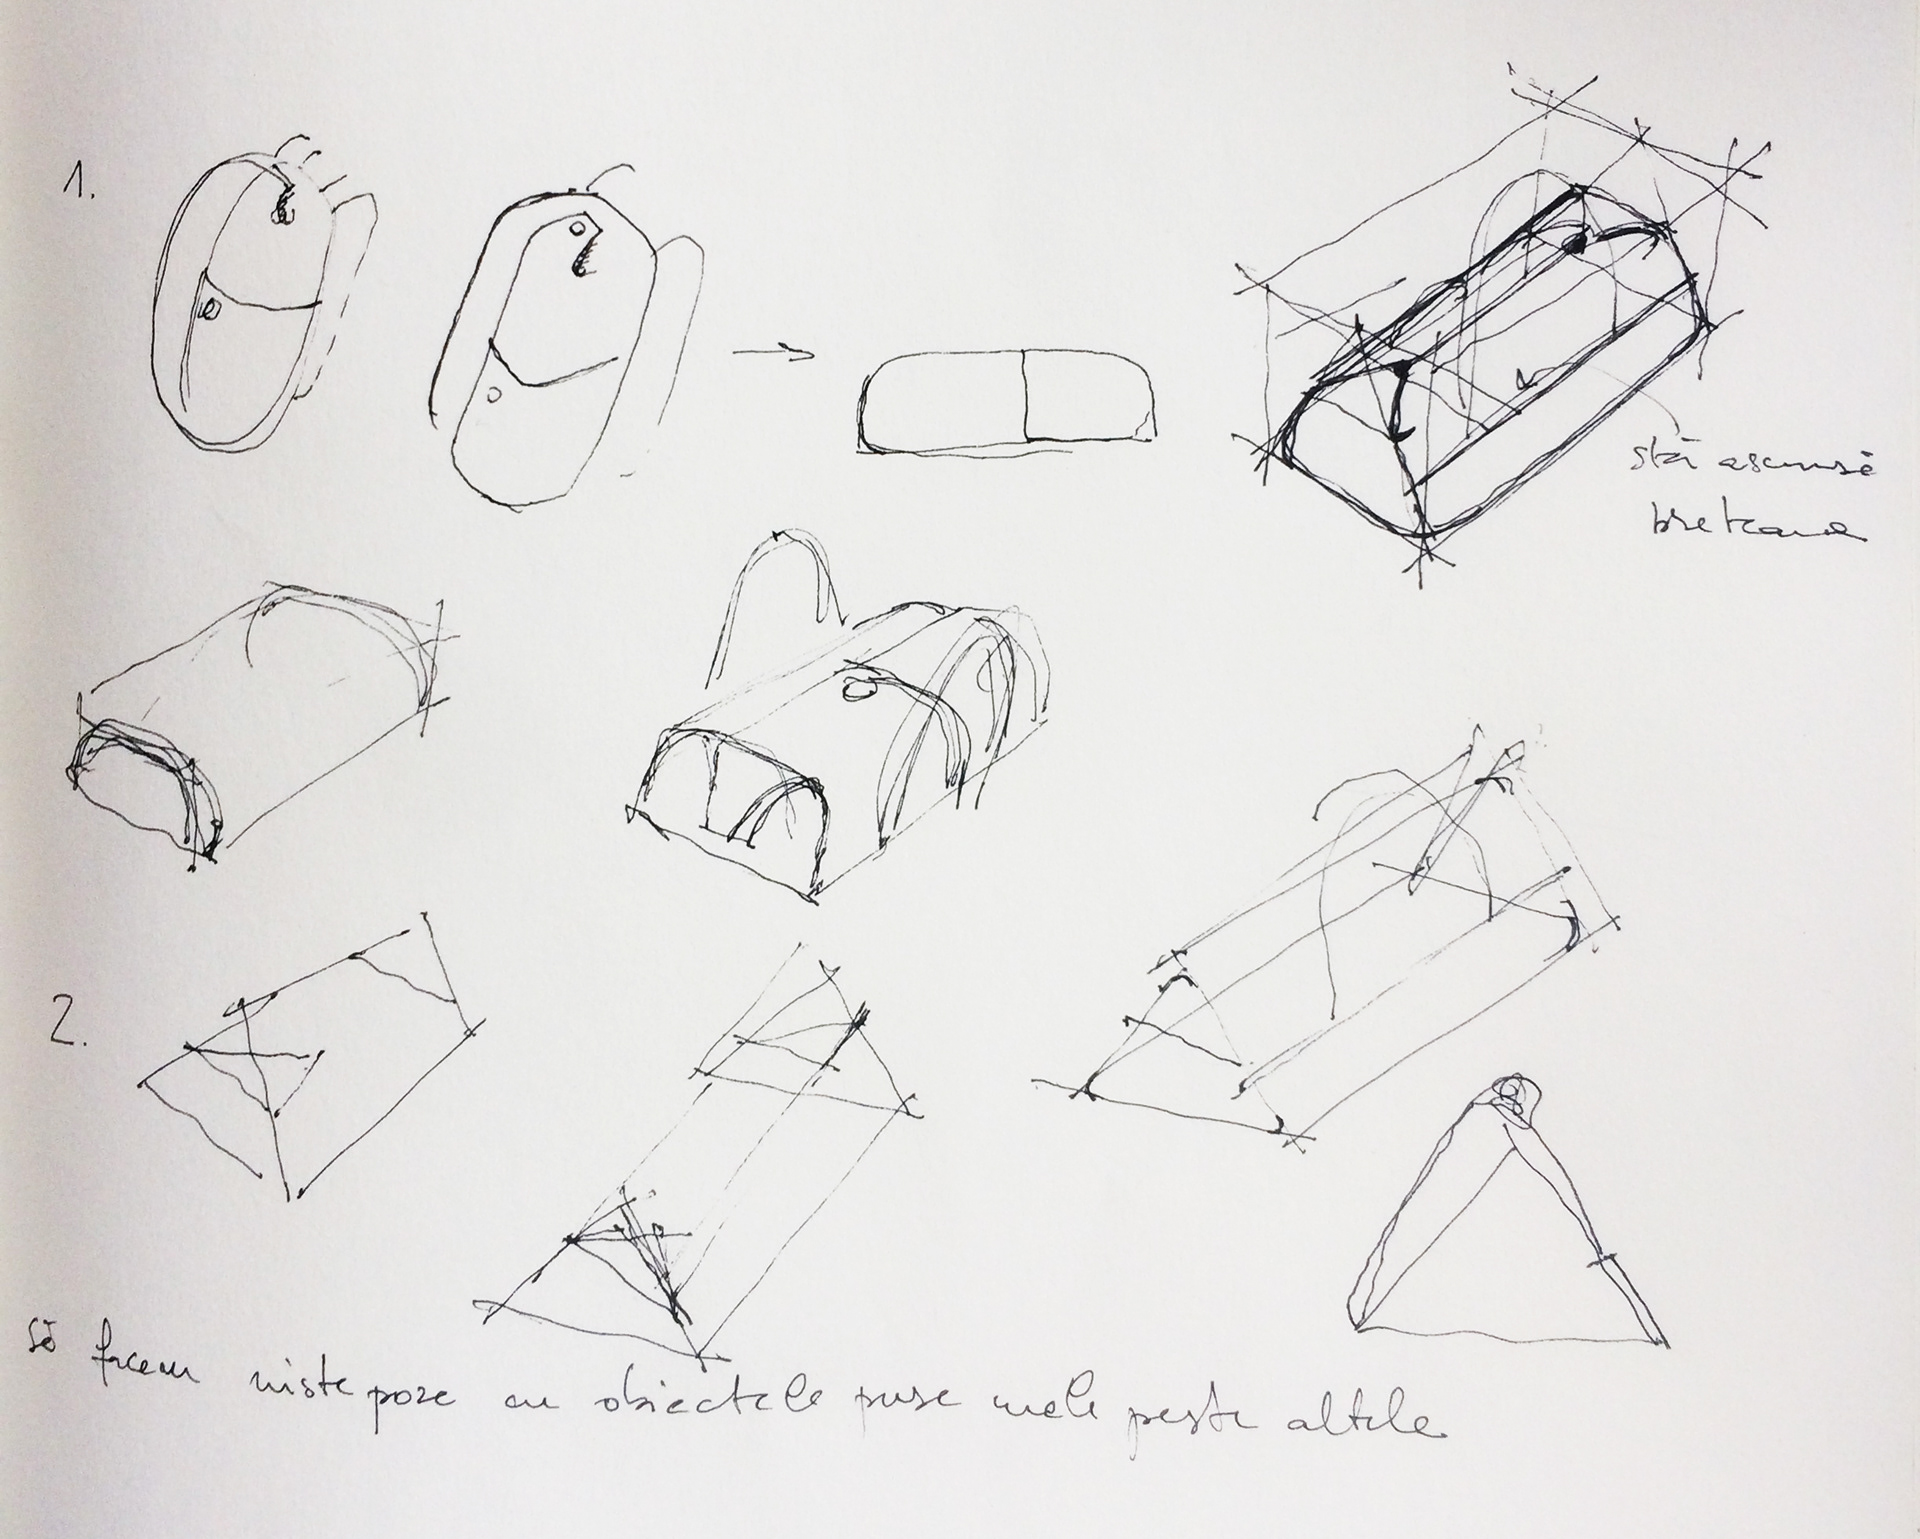 1.
stă ascunsă
breteaua
2.
să facem niste poze cu obiectele puse unele peste altele